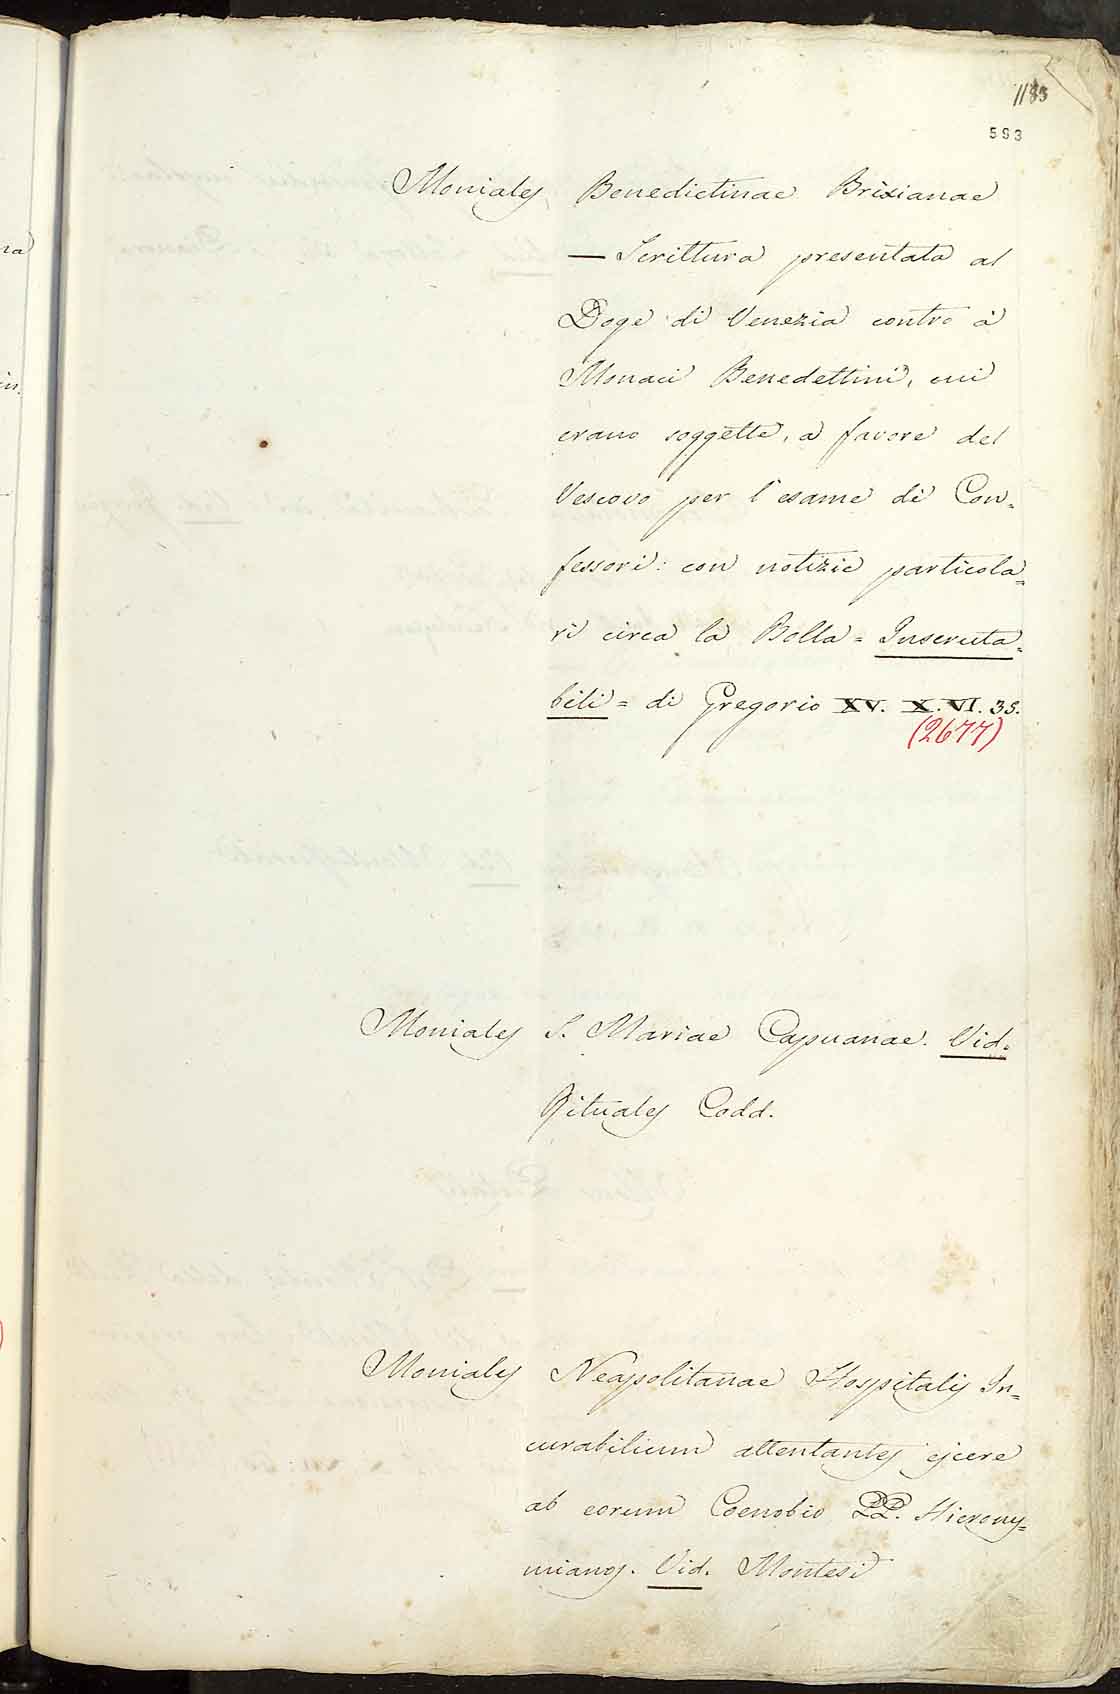 1183
593
Moniales Benedictinae Brixianae
— Scrittura presentata al
Doge di Venezia contro à
Monaci Benedettini, cui
erano soggette, a favore del
Vescovo per l'esame di Con-
fessori: con notizie particola=
ri circa la Bolla = Inscruta=
bili = di Gregorio XV. X. VI. 35.
(2677)
Moniales S. Mariae Capuanae. Vid.
Rituales Codd.
Moniales Neapolitanae Hospitalis In=
curabilium attentantes ejcere
ab eorum Coenobio PP. Hierony=
mianos. Vid. Montesi